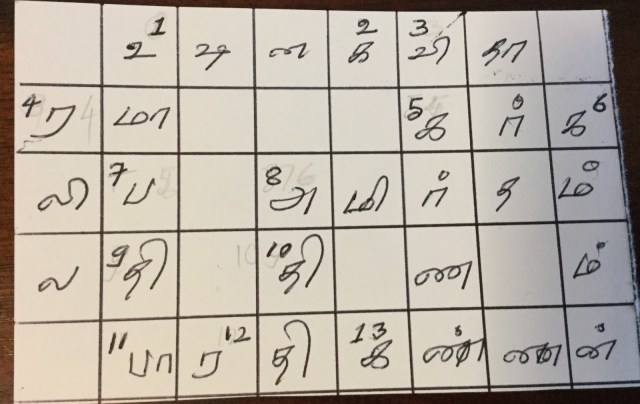 1 உ டி ன 2 க 3 வி தா
4 ர மா 5 க ர் 6 க
லி 7 ப 8 அ மி ர் த ம்
ல 9 தி 10 தி ண ம்
11 பா ர 12 தி 13 க ண் ண ன்